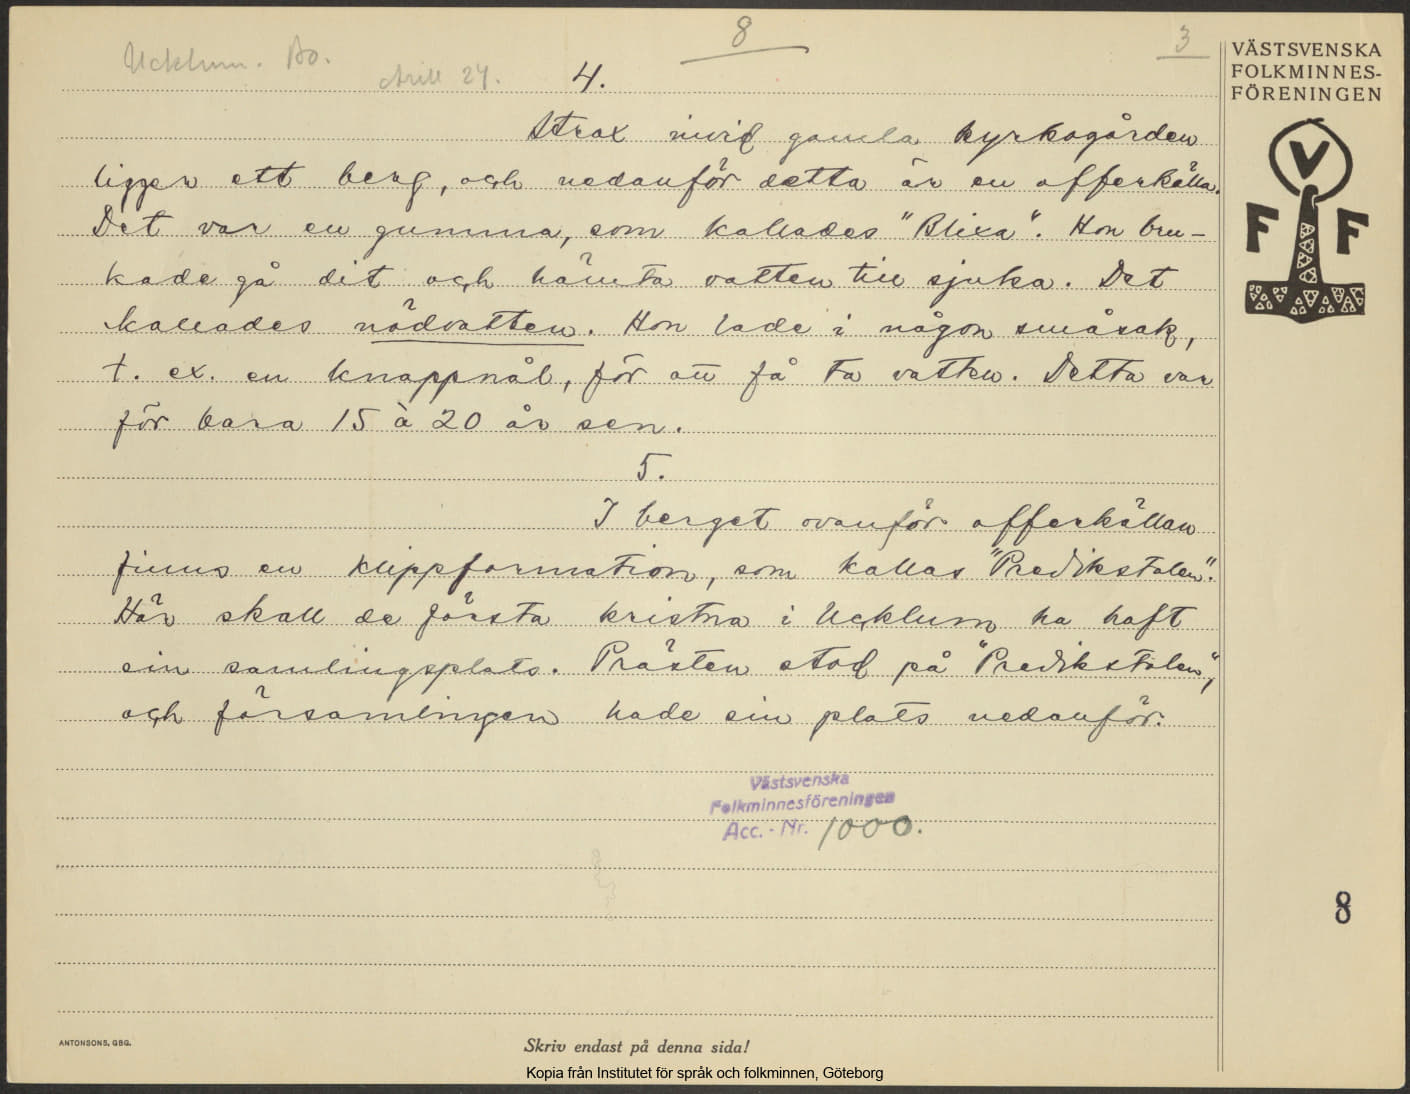 8
3
Ucklum. Bo.
April 24.
4.
Strax invid gamla kyrkogården
ligger ett berg, och nedanför detta är en offerkälla.
Det var en gumma, som kallades "Blixa". Hon bru-
kade gå dit och hämta vatten till sjuka. Det
kallades nödvatten. Hon lade i någon småsak,
t. ex. en knappnål, för att få ta vatten. Detta var
för bara 15 à 20 år sen.
5.
I berget ovanför offerkällan
finns en klippformation, som kallas "Predikstolen".
Här skall de första kristna i Ucklum ha haft
sin samlingsplats. Prästen stod på "Predikstolen",
och församlingen hade sin plats nedanför.
Västsvenska
Folkminnesföreningen
Acc. - Nr. 1000.
ANTONSONS, GBG.
Skriv endast på denna sida!
Kopia från Institutet för språk och folkminnen, Göteborg
VÄSTSVENSKA
FOLKMINNES-
FÖRENINGEN
V
F F
8